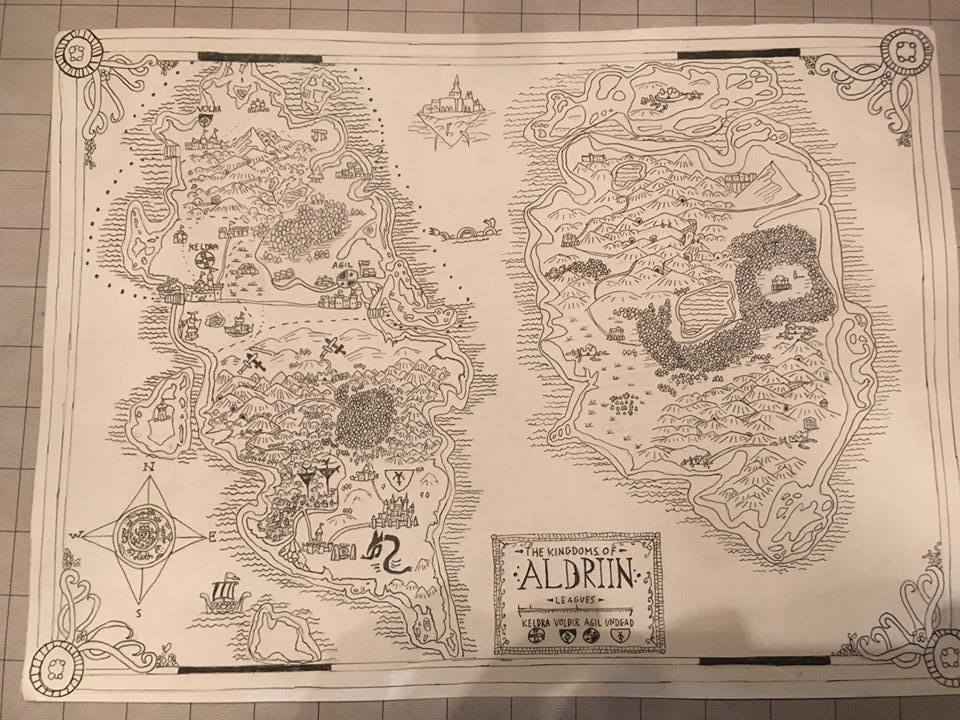 VOLAR
KELDRA
AGIL
N
W
E
S
THE KINGDOMS OF
ALDRIIN
LEAGUES
KELDRA VOLDIR AGIL UNDEAD